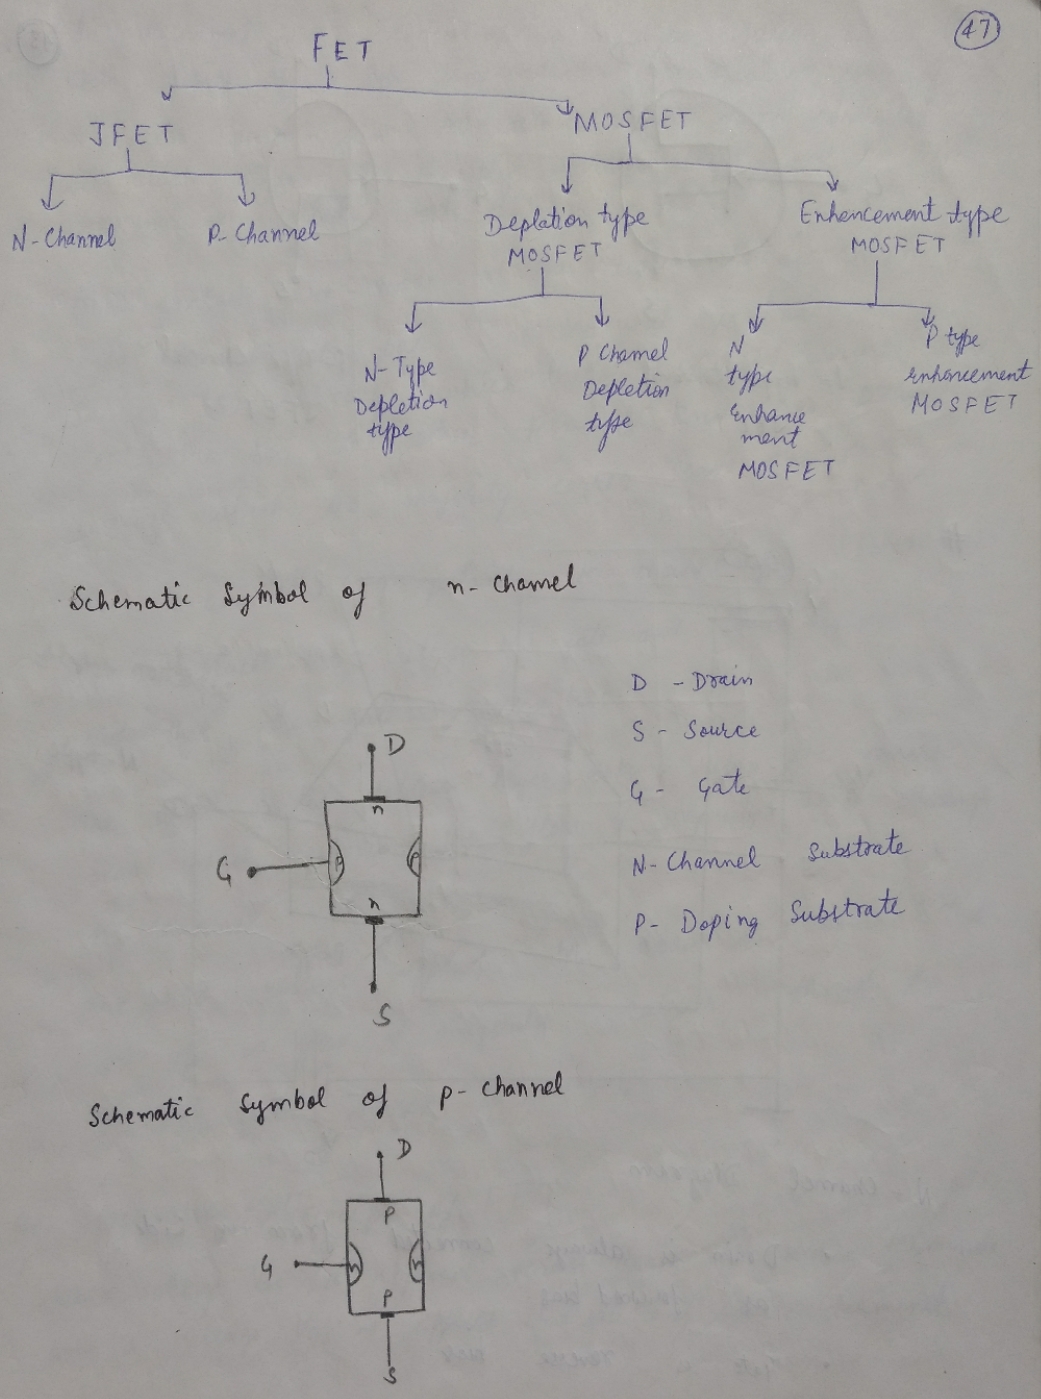 47
FET
JFET
MOSFET
N-Channel
P-Channel
Depletion type
MOSFET
Enhencement type
MOSFET
N-Type
Depletion
type
P Channel
Depletion
type
N
type
Enhance
ment
MOSFET
P type
enhancement
MOSFET
Schematic Symbol of n-channel
D - Drain
S - Source
G - Gate
N-Channel Substrate
P- Doping Substrate
D
n
G
P
P
n
S
Schematic Symbol of p-channel
D
P
G
n
n
P
S